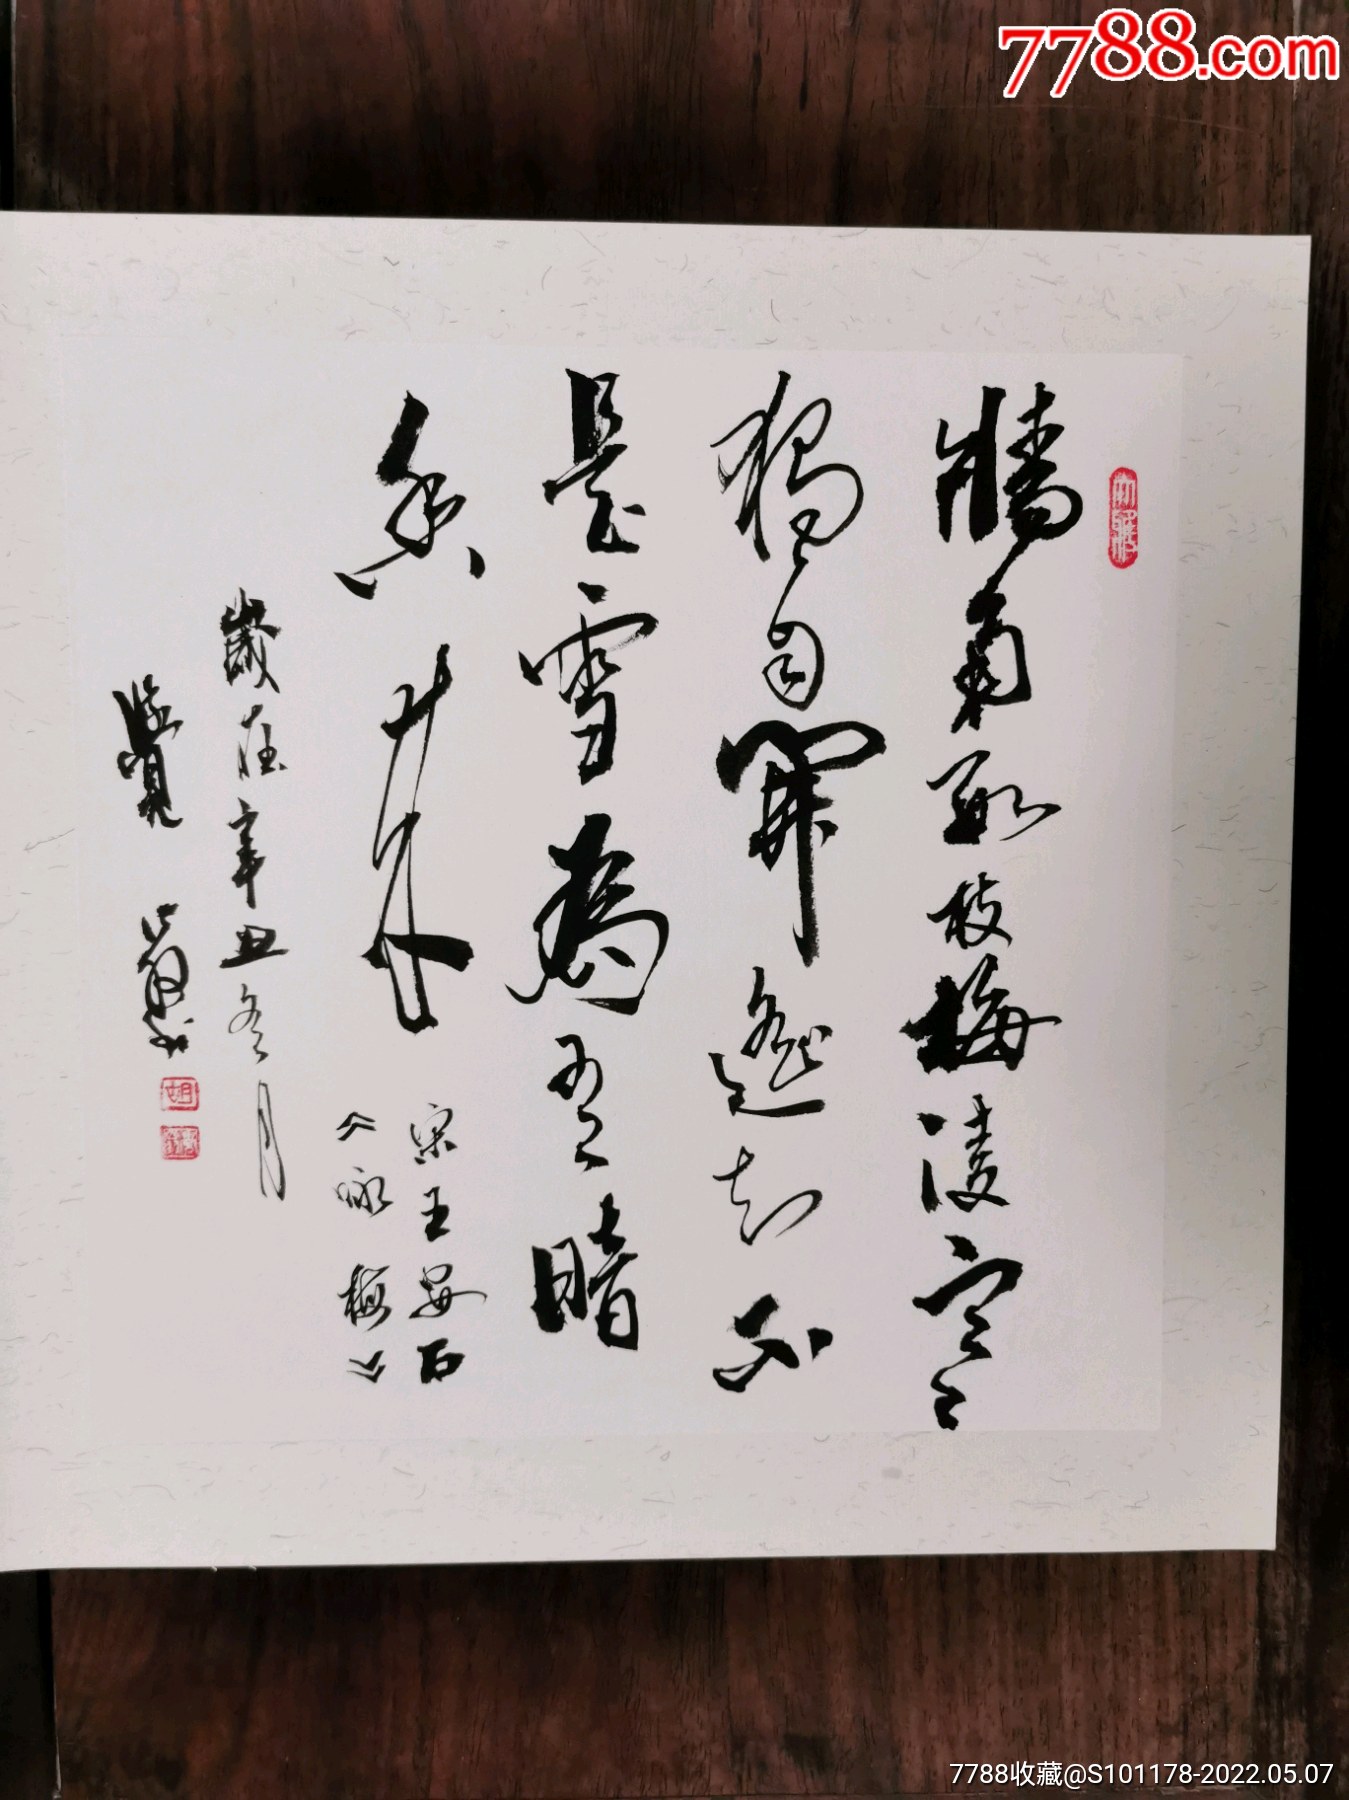 7788.com
牆角數枝梅凌寒
獨自開遙知不
是雪為有暗
香來
宋王安石
《咏梅》
歲在辛丑冬月
7788收藏@S101178-2022.05.07